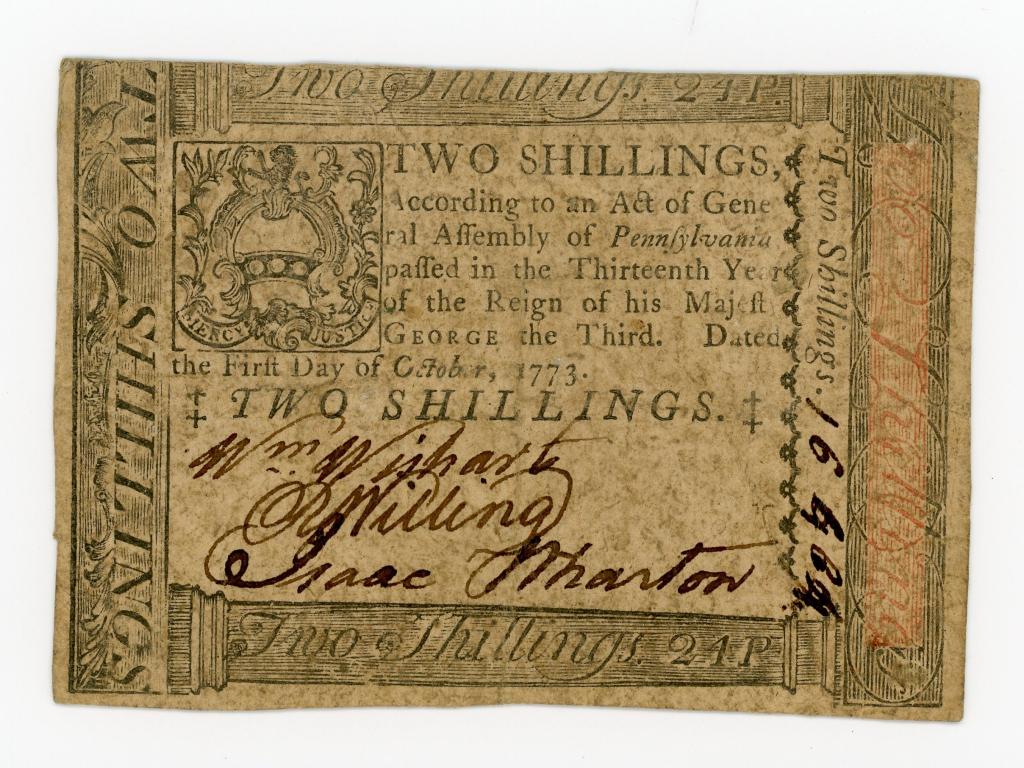 Two Shillings. 24P.
TWO SHILLINGS
MERCY JUSTICE
TWO SHILLINGS,
According to an Act of Gene
ral Aſſembly of Pennſylvania
paſſed in the Thirteenth Year
of the Reign of his Majeſt
GEORGE the Third. Dated
the Firſt Day of October, 1773.
‡ TWO SHILLINGS. ‡
Wm Wishart
R Willing
Isaac Wharton
Two Shillings. 24P
Two Shillings.